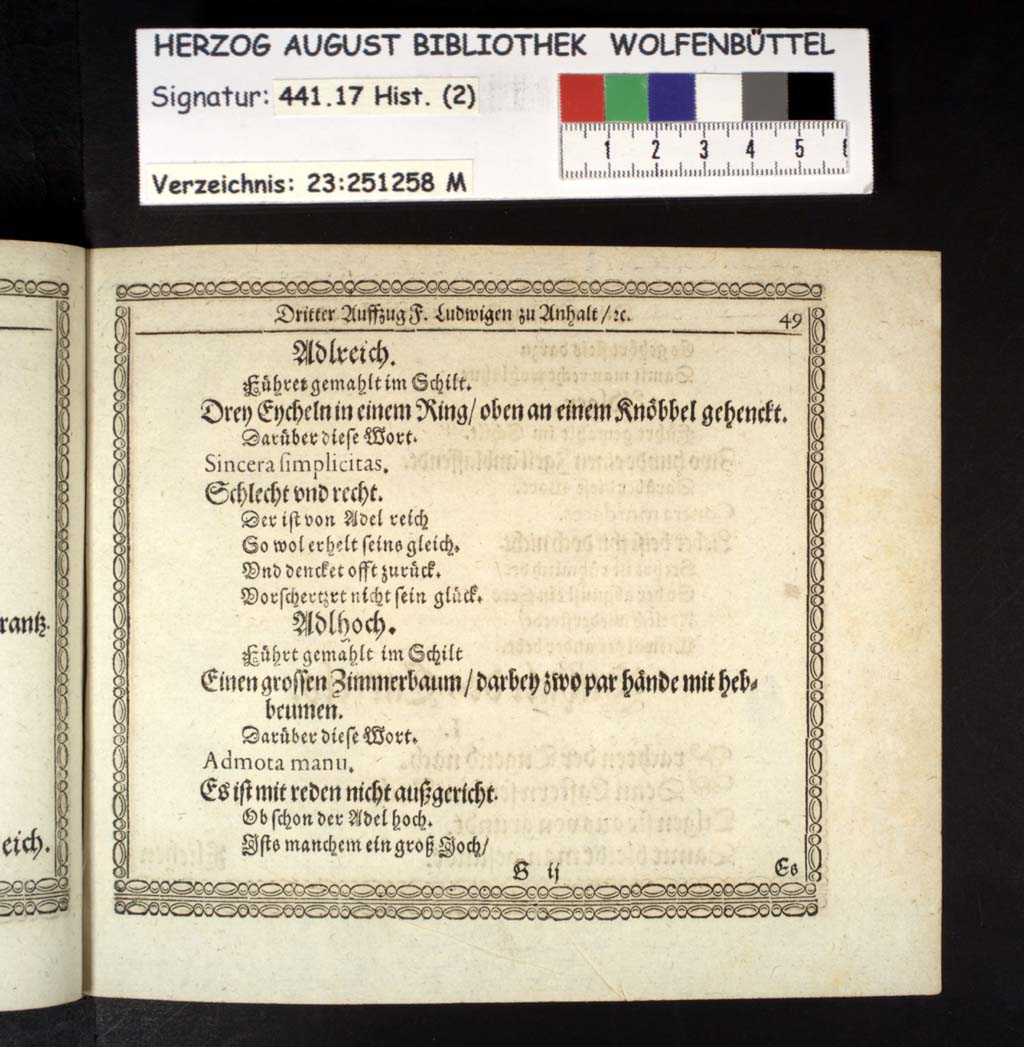 HERZOG AUGUST BIBLIOTHEK WOLFENBÜTTEL
Signatur: 441.17 Hist. (2)
Verzeichnis: 23:251258 M
1 2 3 4 5
rantz.
eich.
Dritter Auffzug F. Ludwigen zu Anhalt/ ꝛc. 49
Adlreich.
Führet gemahlt im Schilt.
Drey Eycheln in einem Ring/ oben an einem Knöbbel gehenckt.
Darüber diese Wort.
Sincera simplicitas.
Schlecht vnd recht.
Der ist von Adel reich
So wol erhelt seins gleich.
Vnd dencket offt zurück.
Vorschertzet nicht sein glück.
Adlhoch.
Führt gemahlt im Schilt
Einen grossen Zimmerbaum/ darbey zwo par hände mit heb-
beumen.
Darüber diese Wort.
Admota manu.
Es ist mit reden nicht außgericht.
Ob schon der Adel hoch.
Ists manchem ein groß Joch/
G ij Es